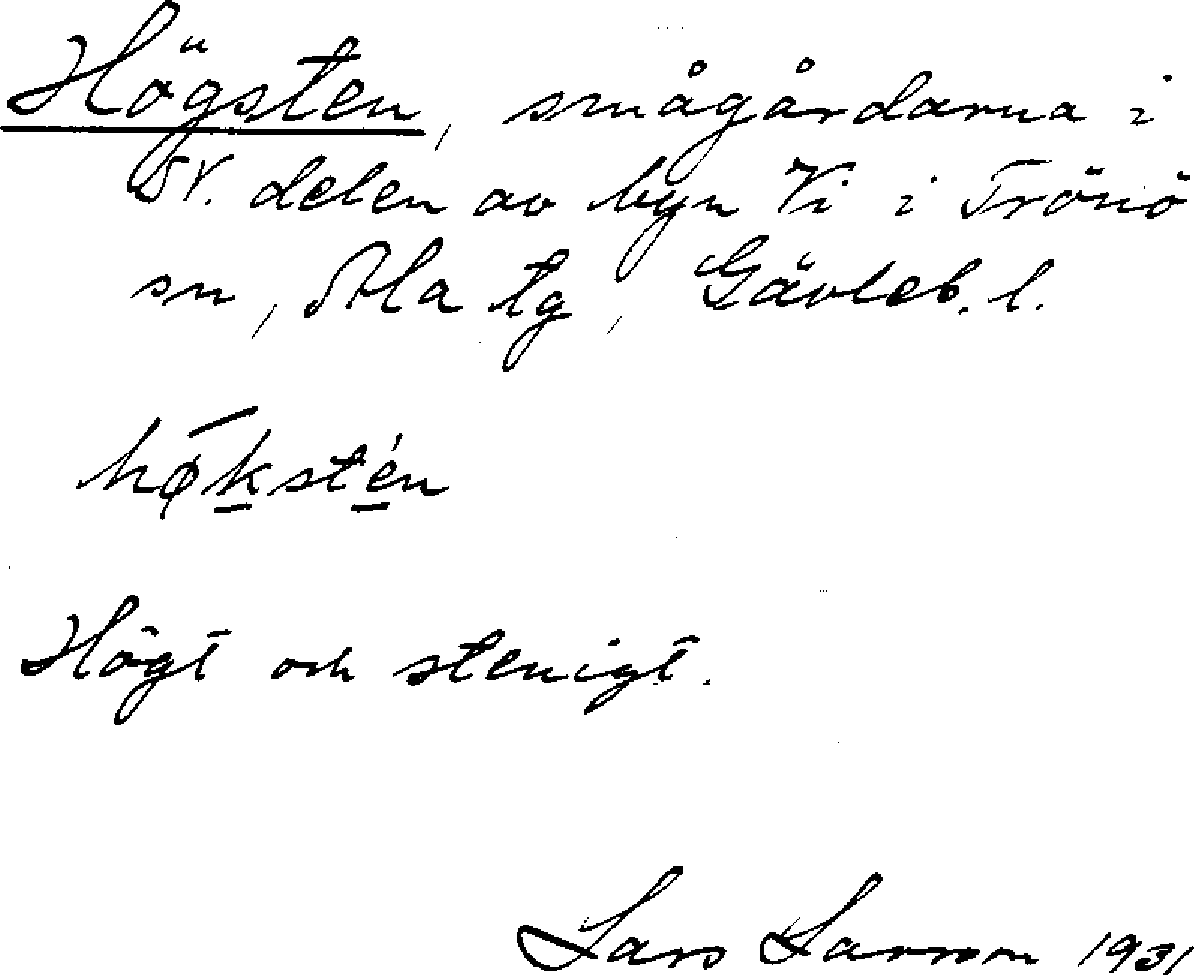 Högsten, smågårdarna i
SV. delen av byn Vi i Trönö
sn, Ala tg, Gävleb. l.
hǿkstén
Högt och stenigt.
Lars Larsson 1931